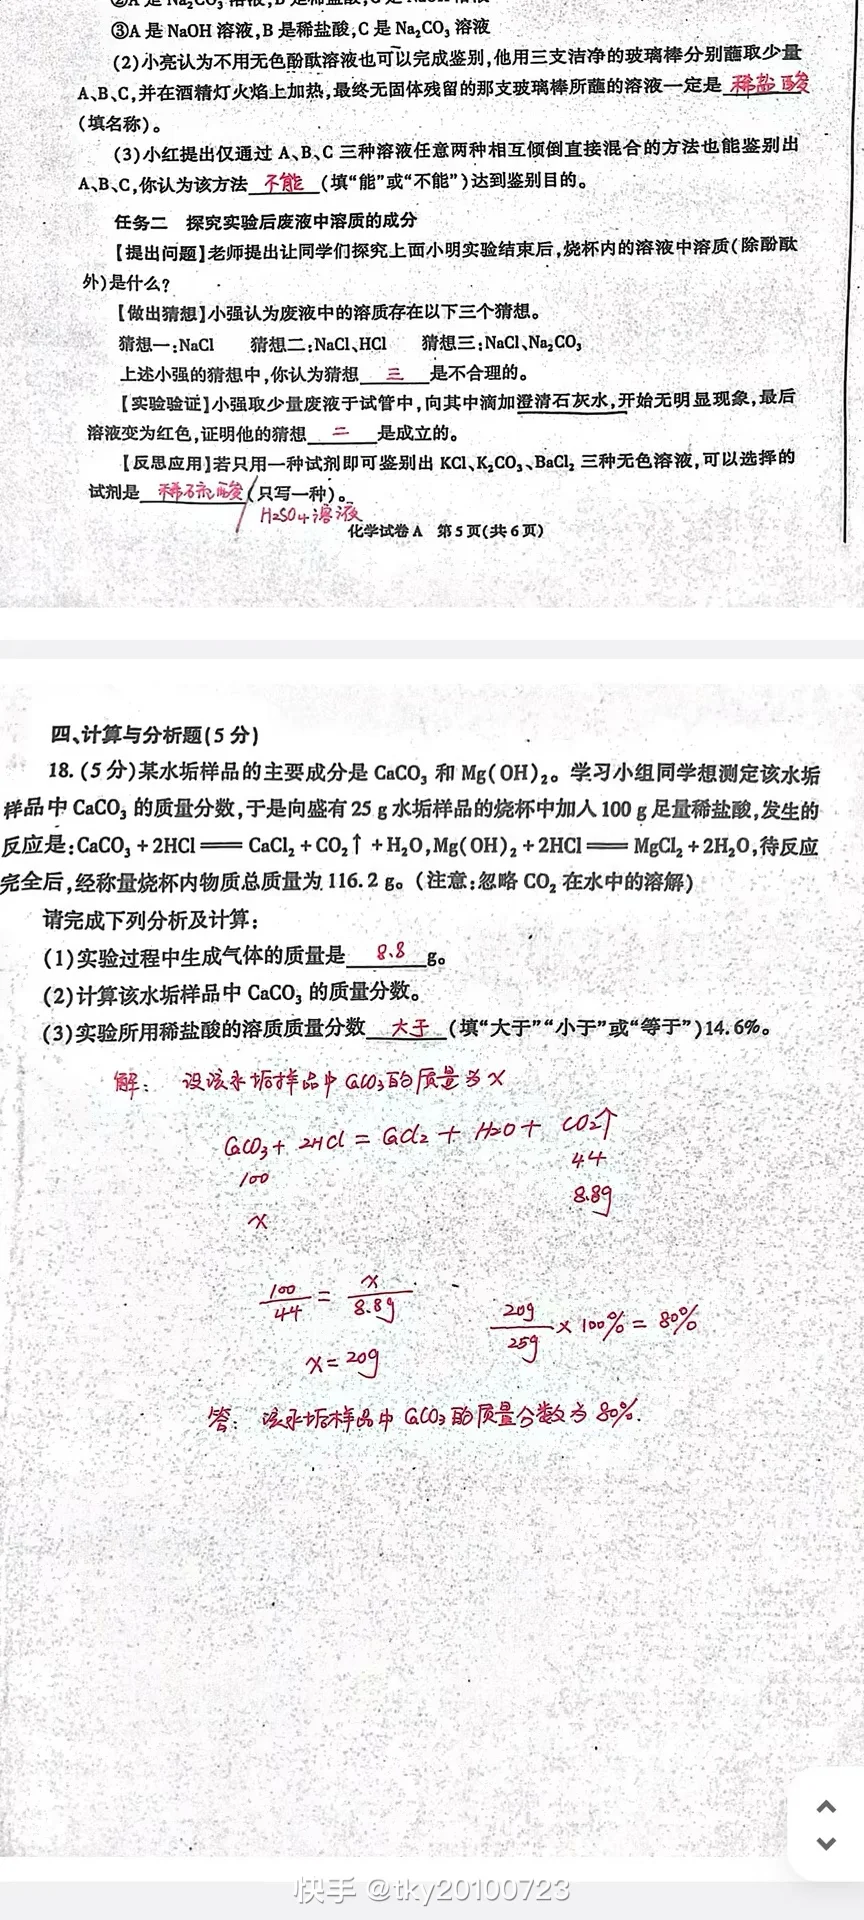 ③A 是 NaOH 溶液,B 是稀盐酸,C 是 Na₂CO₃ 溶液
(2)小亮认为不用无色酚酞溶液也可以完成鉴别,他用三支洁净的玻璃棒分别蘸取少量
A、B、C,并在酒精灯火焰上加热,最终无固体残留的那支玻璃棒所蘸的溶液一定是 稀盐酸
(填名称)。
(3)小红提出仅通过 A、B、C 三种溶液任意两种相互倾倒直接混合的方法也能鉴别出
A、B、C,你认为该方法 不能 (填“能”或“不能”)达到鉴别目的。
任务二 探究实验后废液中溶质的成分
【提出问题】老师提出让同学们探究上面小明实验结束后,烧杯内的溶液中溶质(除酚酞
外)是什么?
【做出猜想】小强认为废液中的溶质存在以下三个猜想。
猜想一:NaCl 猜想二:NaCl、HCl 猜想三:NaCl、Na₂CO₃
上述小强的猜想中,你认为猜想 三 是不合理的。
【实验验证】小强取少量废液于试管中,向其中滴加澄清石灰水,开始无明显现象,最后
溶液变为红色,证明他的猜想 二 是成立的。
【反思应用】若只用一种试剂即可鉴别出 KCl、K₂CO₃、BaCl₂ 三种无色溶液,可以选择的
试剂是 稀硫酸 (只写一种)。
/ H₂SO₄溶液
化学试卷 A 第 5 页(共 6 页)
四、计算与分析题(5 分)
18. (5 分)某水垢样品的主要成分是 CaCO₃ 和 Mg(OH)₂。学习小组同学想测定该水垢
样品中 CaCO₃ 的质量分数,于是向盛有 25 g 水垢样品的烧杯中加入 100 g 足量稀盐酸,发生的
反应是:CaCO₃ + 2HCl══CaCl₂ + CO₂↑ + H₂O,Mg(OH)₂ + 2HCl══MgCl₂ + 2H₂O,待反应
完全后,经称量烧杯内物质总质量为 116.2 g。(注意:忽略 CO₂ 在水中的溶解)
请完成下列分析及计算:
(1)实验过程中生成气体的质量是 8.8 g。
(2)计算该水垢样品中 CaCO₃ 的质量分数。
(3)实验所用稀盐酸的溶质质量分数 大于 (填“大于”“小于”或“等于”)14.6%。
解: 设该水垢样品中 CaCO₃的质量为 x
CaCO₃ + 2HCl = CaCl₂ + H₂O + CO₂↑
100 44
x 8.8g
100/44 = x/8.8g 20g/25g × 100% = 80%
x = 20g
答: 该水垢样品中 CaCO₃的质量分数为 80%.
快手 @tky20100723